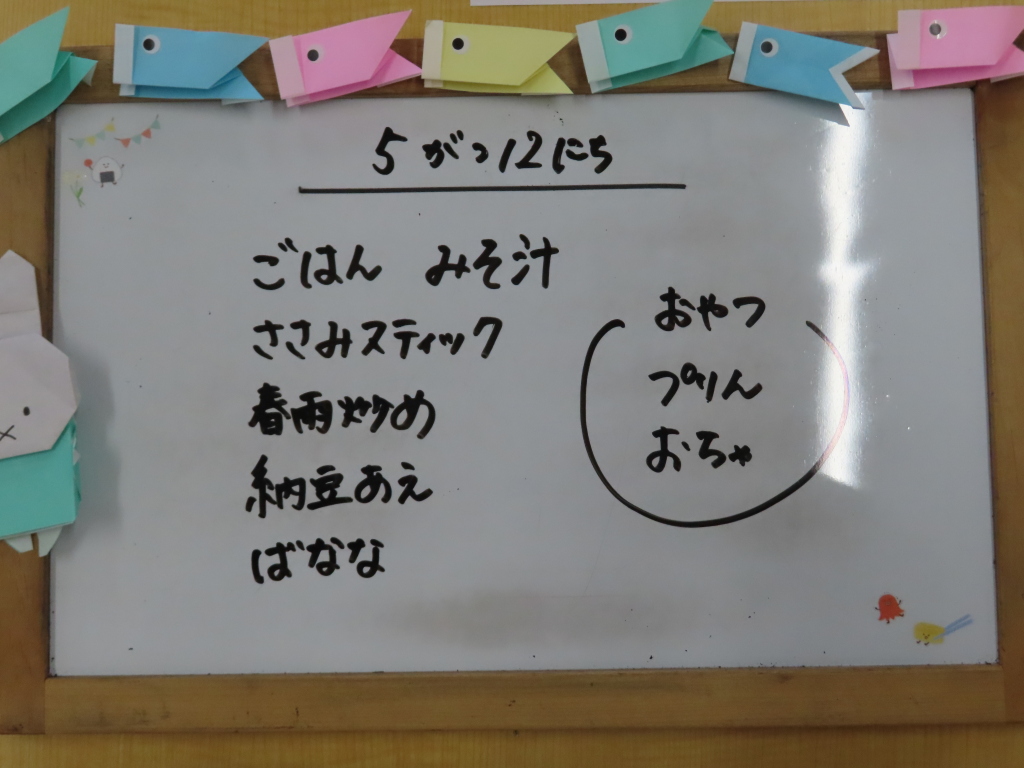 5がつ12にち
ごはん みそ汁
ささみスティック
春雨炒め
納豆あえ
ばなな
おやつ
ぷりん
おちゃ